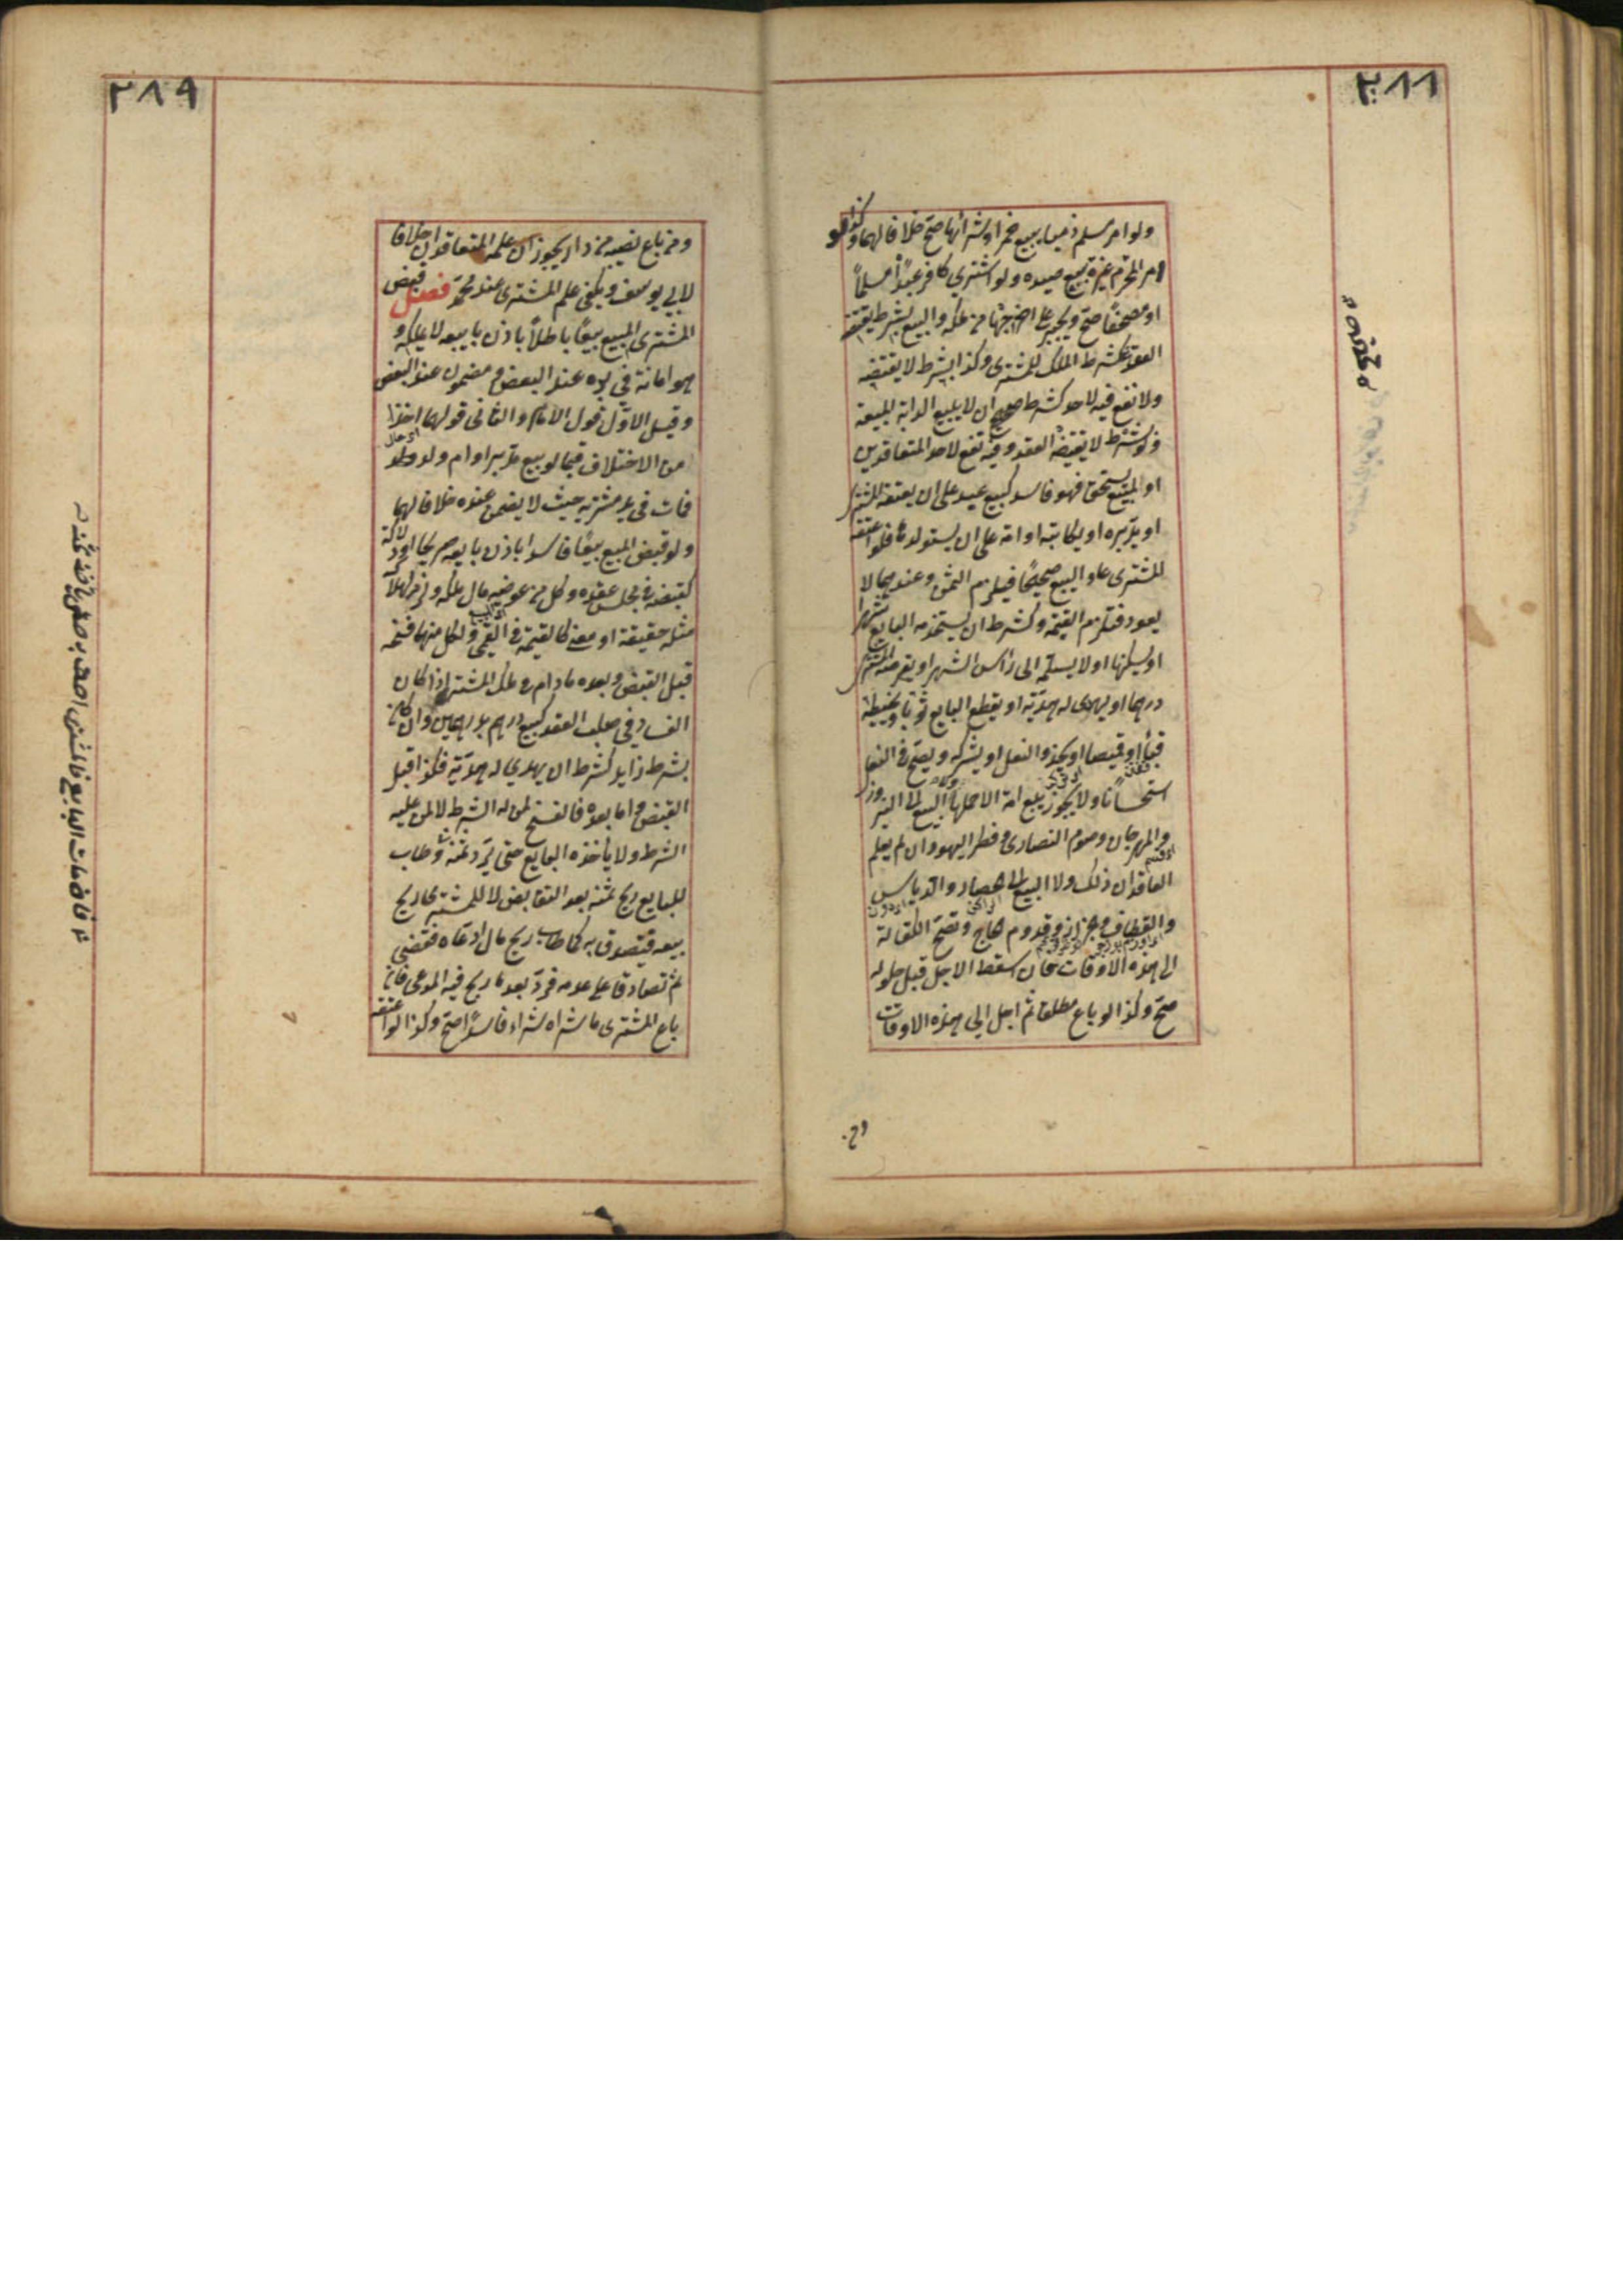 ٢٨٨
ولو امر مسلم ذميا ببيع خمر او شرائها صح خلافا لهما وكذا لو
امر المحرم غيره ببيع صيده ولو اشترى كافر عبدًا مسلمًا
او مصحفًا صح ويجبر على اخراجهما من ملكه والبيع بشرط يقتضيه
العقد كشرط الملك للمشترى وكذا بشرط لا يقتضيه
ولا نفع فيه لاحد كشرط ان لا يبيع الدابة المبيعة
ولو شرط لا يقتضيه العقد وفيه نفع لاحد المتعاقدين
او لمبيع يستحق فهو فاسد كبيع عبد على ان يعتقه المشترى
او يدبره او يكاتبه او امة على ان يستولدها فلو اعتقه
المشترى عاد البيع صحيحًا فيلزم الثمن وعندهما لا
يعود فتلزم القيمة وكشرط ان يستخدمه البايع شهرا
او يسكنها او لا يسلمه الى رأس الشهر او يقرضه المشترى
درهما او يهدى له هدية او يقطع البايع ثوبا ويخيطه
قباء او قميصا او يحذو النعل او يشركه ويصح فى النعل
استحسانا ولا يجوز بيع امة الا حملها والبيع الى النيروز
والمهرجان وصوم النصارى وفطر اليهود ان لم يعلم
العاقدان ذلك ولا البيع الى الحصاد والدياس
والقطاف والجزاز وقدوم الحاج وتصح الكفالة
الى هذه الاوقات فان اسقط الاجل قبل حلوله
صح وكذا لو باع مطلقا ثم اجل الى هذه الاوقات
ومن
٢٨٩
ومن باع نصيبه من دار يجوز ان علمه المتعاقدان خلافا
لابى يوسف ويكفى علم المشترى عند محمد فصل قبض
المشترى المبيع بيعًا باطلًا باذن بايعه لا يملكه و
هو امانة فى يده عند البعض ومضمون عند البعض
وقيل الاول قول الامام والثانى قولهما اخذا
من الاختلاف فيما لو بيع مدبر او ام ولد
فمات فى يد مشتريه حيث لا يضمن عنده خلافا لهما
ولو قبض المبيع بيعًا فاسدا باذن بايعه صريحا او دلالة
كقبضه فى مجلس عقده وكل من عوضيه مال ملكه ولزمه
مثله حقيقة او معنى كالقيمة فى القيمى ولكل منهما فسخه
قبل القبض وبعده ما دام فى ملك المشترى اذا كان
الفساد فى صلب العقد كبيع درهم بدرهمين وان كان
بشرط زايد كشرط ان يهدى له هدية فكذا قبل
القبض واما بعده فالفسخ لمن له الشرط لا لمن عليه
الشرط ولا يأخذه البايع حتى يرد ثمنه وطاب
للبايع ربح ثمنه بعد التقابض لا للمشترى ربح
بيعه فيتصدق به كما طاب ربح مال ادعاه فقضى
ثم تصادقا على عدمه فرد بعد ما ربح فيه المدعى فان
باع المشترى ما شراه شراء فاسدًا صح وكذا لو اعتقه
فان مات البايع فالمشترى احق به حتى يأخذ ثمنه